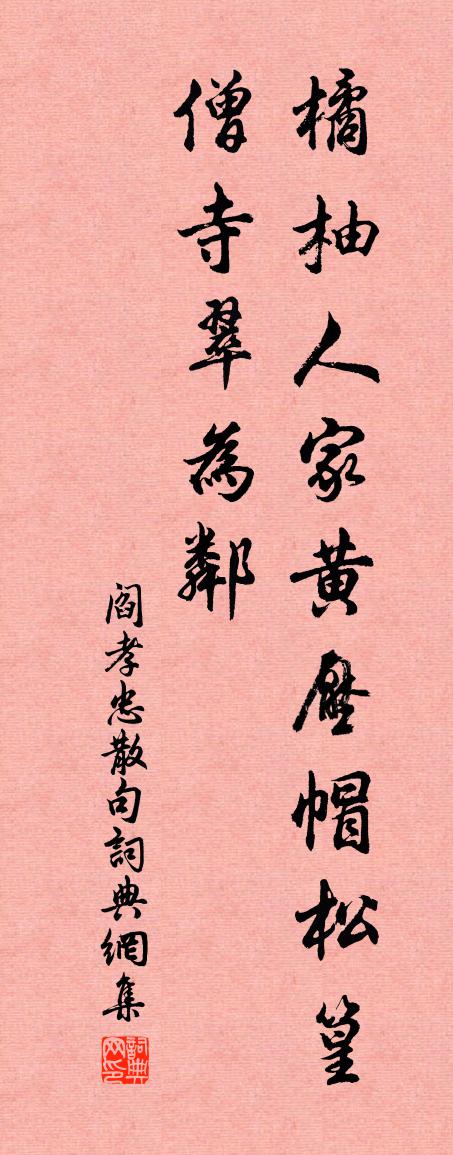 橘柚人家黄壓帽松篁
僧寺翠為鄰
閻孝忠散句詞典網集
詞典网印